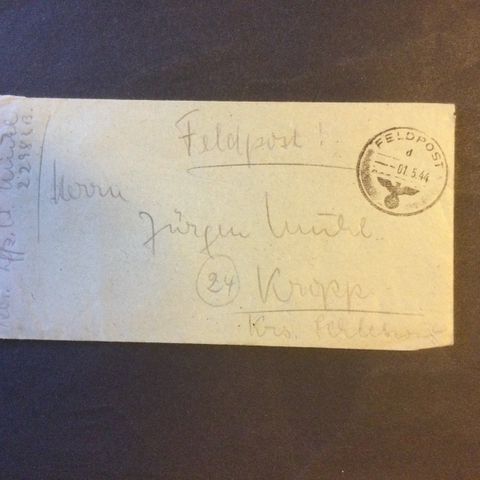 Feldpost!
FELDPOST
d
01.5.44
Herrn
Jürgen
24
Kropp
Krs. Schleswig
22986B.